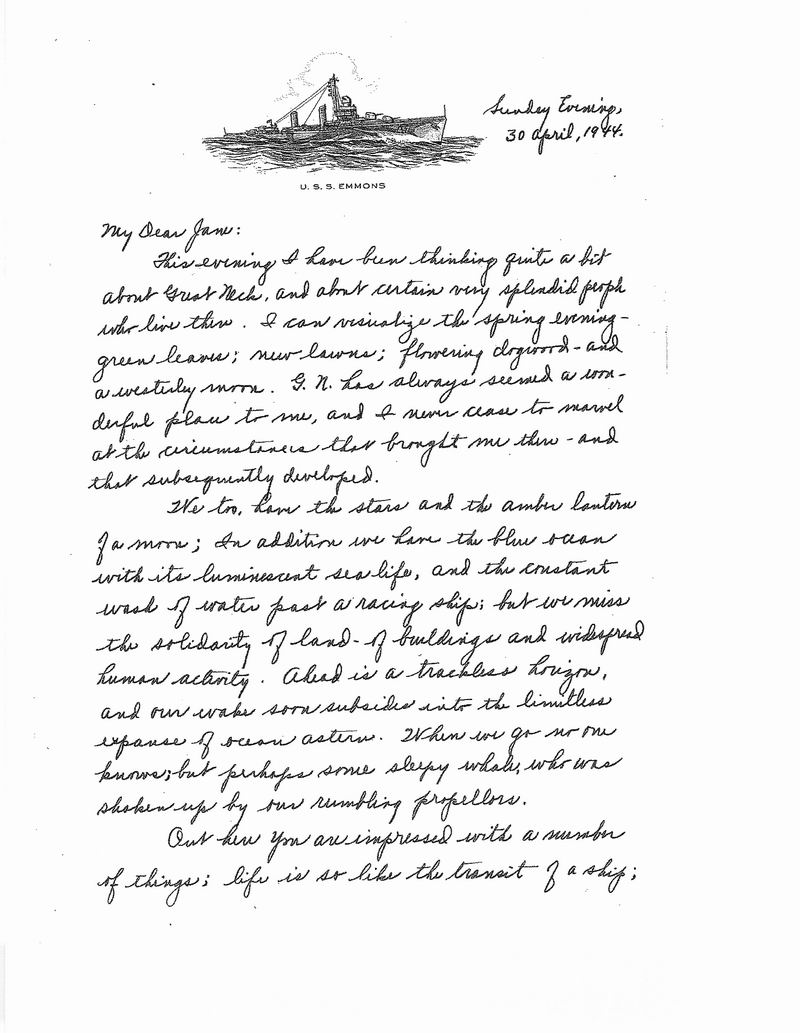 Sunday Evening,
30 April, 1944.
U. S. S. EMMONS
My Dear Jane:
This evening I have been thinking quite a bit
about Great Neck, and about certain very splendid people
who live there. I can visualize the spring evening-
green leaves; new lawns; flowering dogwood - and
a westerly moon. G. N. has always seemed a won-
derful place to me, and I never cease to marvel
at the circumstances that brought me there - and
that subsequently developed.
We too, have the stars and the amber lantern
of a moon; In addition we have the blue ocean
with its luminescent sea life, and the constant
wash of water past a racing ship; but we miss
the solidarity of land - of buildings and widespread
human activity. Ahead is a trackless horizon,
and our wake soon subsides into the limitless
expanse of ocean astern. When we go no one
knows; but perhaps some sleepy whale, who was
shaken up by our rumbling propellors.
Out here you are impressed with a number
of things; life is so like the transit of a ship;